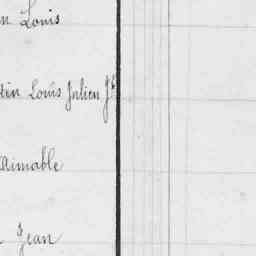 n Louis
tin Louis Julien Jh
aimable
Jean